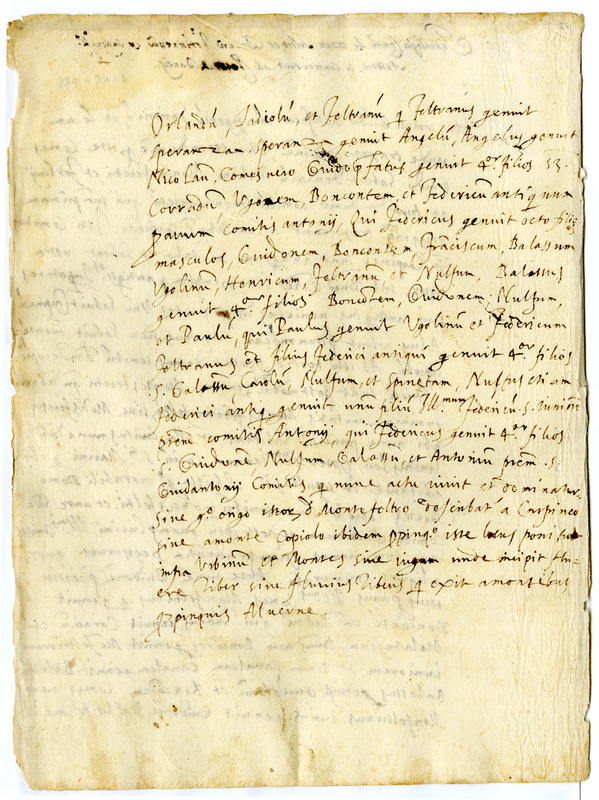 Orlandū, Ladiolū, et Feltranū q̄ Feltranus genuit
speranzam. Speranza genuit Angelū, Angelus genuit
Nicolaū. Comes uero Guido p̄fatus genuit 4.or filios SS.
Corradū Ugonem, Boncontem, et Federicū antiquum
pauum Comitis antonij, Qui Federicus genuit octo filios
masculos, Guidonem, Boncontem, Frāciscum, Galassum
Ugolinum, Henricum, Feltranū et Nulfum, Galassus
genuit 4.or filios Boncōtem, Guidonem, Nulfum,
et Paulū, qui Paulus genuit Ugolinū et Federicum
Feltranus et̄ filius Federici antiqui genuit 4.or filios
S. Galassū Carolū, Nulfum, et Spinetam, Nulfus etiam
Federici antiq. genuit unū filiū Ill.mum Federicū S. Iuniorē
prēm comitis Antonij, qui Federicus genuit 4.or filios
S. Guidonē Nulfum Galassū, et Antoniū prēm S.
Guidantonij Comitis q̄ nunc actu uiuit et dominatur.
Siue g.o origo istor̄ d Montefeltro descēbat a Carpineo
siue amonte Copiolo ibidem p̄pinq.o iste locus poni fuit
infra Urbinum et Montes siue iugum unde incipit flu-
ere Tiber siue fluuius Tiberis q̄ exit amontibus
p̄pinquis Aluerne.